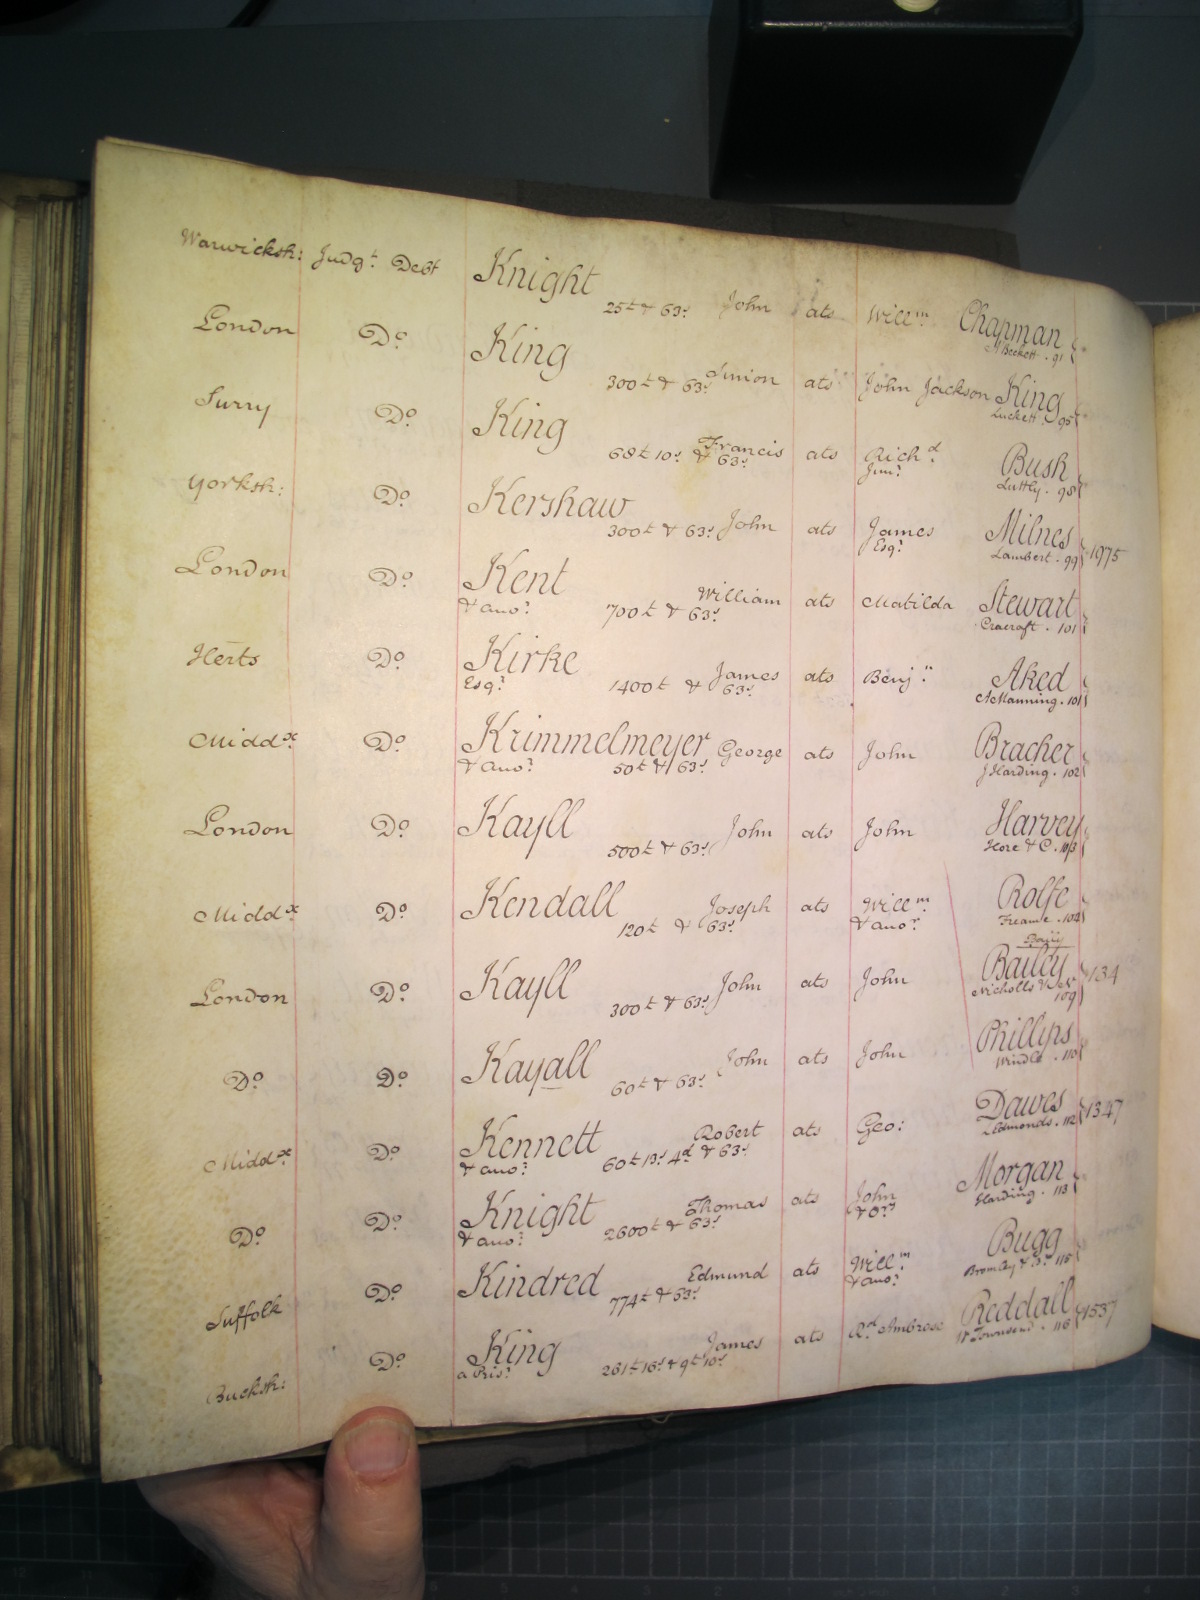 Warwicksh: Judgt. Debt Knight 25£ & 63s John ats Willm. Chapman
A'Beckett . 91
London Do. King 300£ & 63s Simon ats John Jackson King
Luckett . 95
Surry Do. King 68£ 10s & 63s Francis ats Richd. Junr. Bush
98
Yorksh: Do. Kershaw 300£ & 63s John ats James Esqr. Milnes 1975
Lambert . 99
London Do. Kent & anor. 700£ & 63s William ats Matilda Stewart
Cracroft . 101
Herts Do. Kirke Esqr. 1400£ & 63s James ats Benjn. Aked
A Manning . 101
Middx. Do. Krimmelmeyer & anor. 50£ & 63s George ats John Bracher
J Harding . 102
London Do. Kayll 500£ & 63s John ats John Harvey
Hore & C . 103
Middx. Do. Kendall 120£ & 63s Joseph ats Willm. & anor. Rolfe
Freame . 102
London Do. Kayll 300£ & 63s John ats John Bailey 134
Nicholls & 109
Do. Do. Kayall 60£ & 63s John ats John Phillips
Windle . 110
Middx. Do. Kennett & anor. 60£ 13s 4d & 63s Robert ats Geo: Dawes 1347
Edmonds . 112
Do. Do. Knight & anor. 2600£ & 63s Thomas ats John & Ors Morgan
Harding . 113
Suffolk Do. Kindred 774£ & 63s Edmund ats Willm. & anor. Bugg
Bromley & S. 115
Bucksh: Do. King a Prisr. 261£ 16s & 9£ 10s James ats Rd. Ambrose Reddall 1537
W Townsend . 116